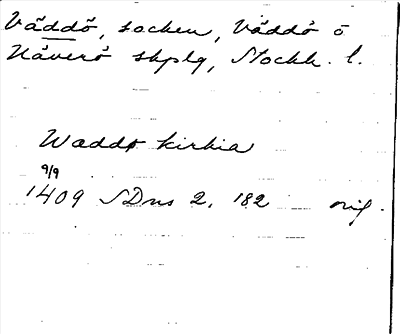 Väddö, socken, Väddö o
Häverö skplg, Stockh. l.
Waddø kirkia
9/9
1409 SDns 2, 182 orig.